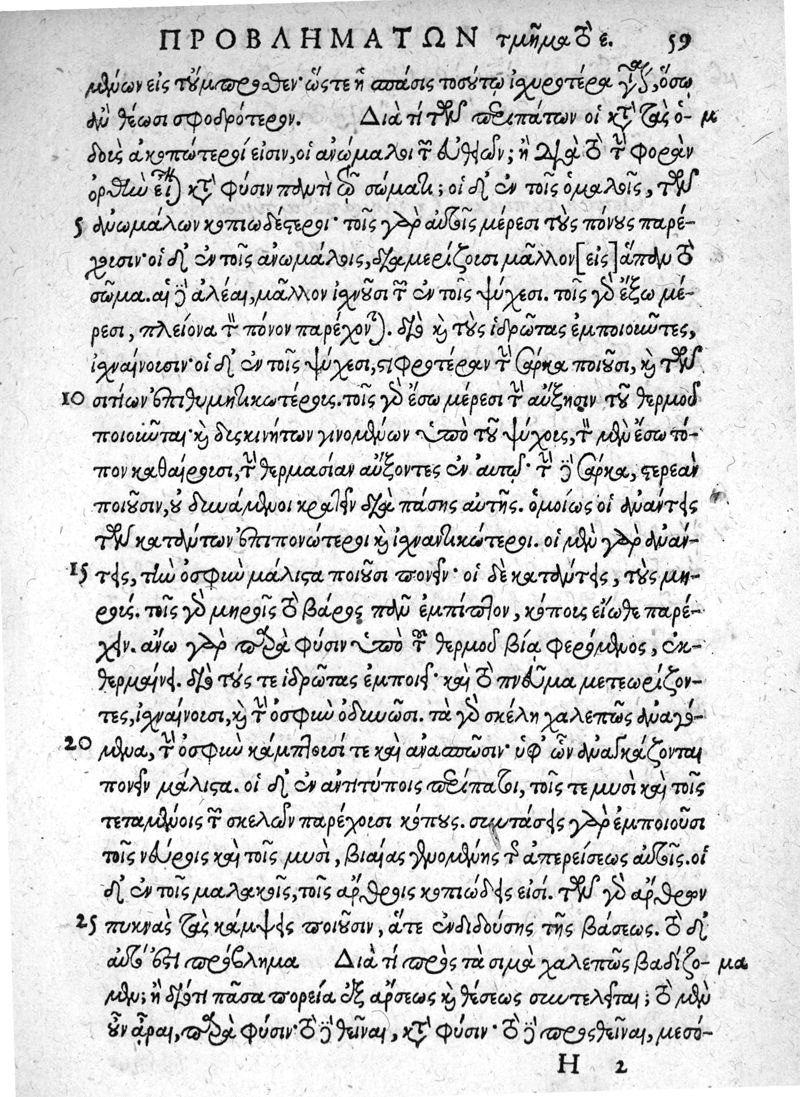 ΠΡΟΒΛΗΜΑΤΩΝ τμῆμα τὸ ε. 59
μένων εἰς τὔμπροσθεν· ὥστε ἡ σπάσις τοσούτῳ ἰσχυροτέρα γίνεται, ὅσῳ
ἂν θέωσι σφοδρότερον. Διὰ τί τῶν περιπάτων οἱ κατὰ τὰς ὁ- μ
δοὺς ἀκοπώτεροί εἰσιν, οἱ ἀνώμαλοι τῶν εὐθέων; ἢ διὰ τὸ τὴν φορὰν
ὀρθὴν εἶναι κατὰ φύσιν παντὶ τῷ σώματι; οἱ δ' ἐν τοῖς ὁμαλοῖς, τῶν
5 ἀνωμάλων κοπιωδέστεροι· τοῖς γὰρ αὐτοῖς μέρεσι τοὺς πόνους παρέ-
χουσιν· οἱ δ' ἐν τοῖς ἀνωμάλοις, διαμερίζουσι μᾶλλον [εἰς] ἅπαν τὸ
σῶμα. αἱ δὲ ἀλέαι, μᾶλλον ἰσχνοῦσι τῶν ἐν τοῖς ψύχεσι. τοῖς γὰρ ἔξω μέ-
ρεσι, πλείονα τὸν πόνον παρέχονται. διὸ καὶ τοὺς ἱδρῶτας ἐμποιοῦντες,
ἰσχναίνουσιν· οἱ δ' ἐν τοῖς ψύχεσι, στιφροτέραν τὴν σάρκα ποιοῦσι, καὶ τῶν
10 σιτίων ἐπιθυμητικωτέρους. τοῖς γὰρ ἔσω μέρεσι τὴν αὔξησιν τοῦ θερμοῦ
ποιοῦνται· καὶ δυσκινήτων γινομένων ὑπὸ τοῦ ψύχους, τὸν μὲν ἔσω τό-
πον καθαίρουσι, τὴν θερμασίαν αὔξοντες ἐν αὐτῷ· τὴν δὲ σάρκα, στερεὰν
ποιοῦσιν, οὐ δυνάμενοι κρατεῖν διὰ πάσης αὐτῆς. ὁμοίως οἱ ἀνάντεις
τῶν κατάντων ἐπιπονώτεροι καὶ ἰσχναντικώτεροι. οἱ μὲν γὰρ ἀνάν-
15 τεις, τὴν ὀσφὺν μάλιστα ποιοῦσι πονεῖν· οἱ δὲ κατάντεις, τοὺς μη-
ρούς. τοῖς γὰρ μηροῖς τὸ βάρος πᾶν ἐμπίπτον, κόπους εἴωθε παρέ-
χειν. ἄνω γὰρ παρὰ φύσιν ὑπὸ τοῦ θερμοῦ βίᾳ φερόμενος, ἐκ-
θερμαίνει. διὸ τούς τε ἱδρῶτας ἐμποιεῖ· καὶ τὸ πνεῦμα μετεωρίζον-
τες, ἰσχναίνουσι, καὶ τὴν ὀσφὺν ὀδυνῶσι. τὰ γὰρ σκέλη χαλεπῶς ἀναγό-
20 μενα, τὴν ὀσφὺν κάμπτουσί τε καὶ ἀνασπῶσιν· ὑφ' ὧν ἀναγκάζονται
πονεῖν μάλιστα. οἱ δ' ἐν ἀντιτύποις περίπατοι, τοῖς τε μυσὶ καὶ τοῖς
τεταμένοις τῶν σκελῶν παρέχουσι κόπους. συντάσεις γὰρ ἐμποιοῦσι
τοῖς νεύροις καὶ τοῖς μυσὶ, βιαίας γενομένης τῆς ἀπερείσεως αὐτοῖς. οἱ
δ' ἐν τοῖς μαλακοῖς, τοῖς ἄρθροις κοπιώδεις εἰσί. τῶν γὰρ ἄρθρων
25 πυκνὰς τὰς κάμψεις ποιοῦσιν, ἅτε ἐνδιδούσης τῆς βάσεως. τὸ δ'
αὐτό ἐστι πρόβλημα Διὰ τί πρὸς τὰ σιμὰ χαλεπῶς βαδίζο- μα
μεν; ἢ διότι πᾶσα πορεία ἐξ ἄρσεως καὶ θέσεως συντελεῖται; τὸ μὲν
οὖν ἆραι, παρὰ φύσιν· τὸ δὲ θεῖναι, κατὰ φύσιν· τὸ δὲ προςθεῖναι, μεσό-
H 2